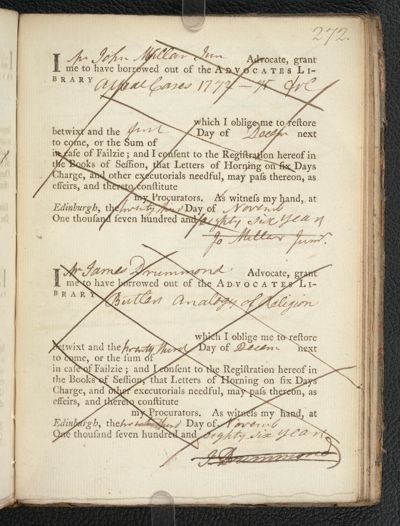 272.
I Mr John Millar Junr Advocate, grant
me to have borrowed out of the ADVOCATES LI-
BRARY Appeal Cases 1774–75 &c
which I oblige me to restore
betwixt and the first Day of Decem next
to come, or the Sum of
in case of Failzie; and I consent to the Registration hereof in
the Books of Session, that Letters of Horning on six Days
Charge, and other executorials needful, may pass thereon, as
effeirs, and thereto constitute
my Procurators. As witness my hand, at
Edinburgh, the twenty third Day of Novemb
One thousand seven hundred and eighty six years
Jo Millar Junr.
I Mr James Drummond Advocate, grant
me to have borrowed out of the ADVOCATES LI-
BRARY Butlers Analogy of Religion
which I oblige me to restore
betwixt and the twenty third Day of Decem next
to come, or the sum of
in case of Failzie; and I consent to the Registration hereof in
the Books of Session, that Letters of Horning on six Days
Charge, and other executorials needful, may pass thereon, as
effeirs, and thereto constitute
my Procurators. As witness my hand, at
Edinburgh, the twenty third Day of Novemb
One thousand seven hundred and eighty six years
J. Drummond